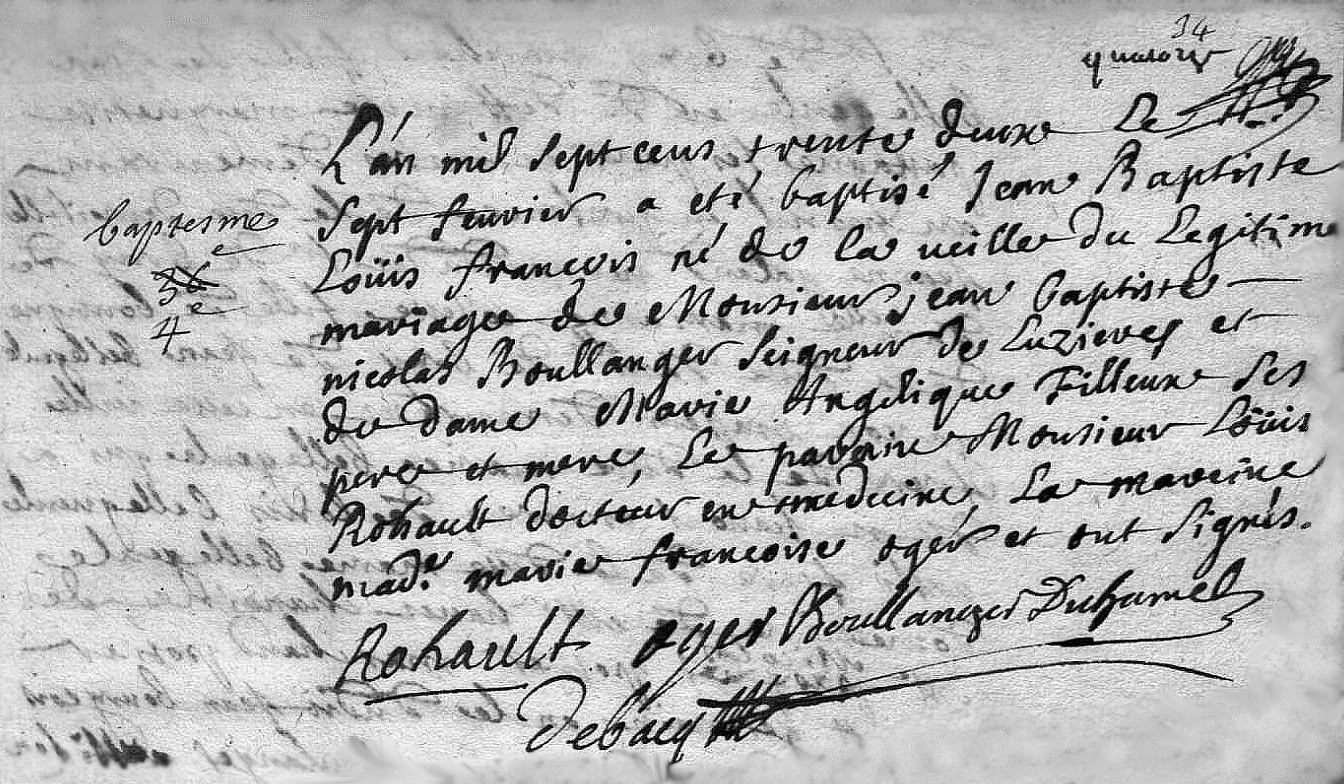 14
quatorze
L'an mil sept cens trente deux Le
Baptesme
sept feuvier a eté baptisé Jean Baptiste
Loüis françois né de la veille du Legitime
4e
mariage de Monsieur jean baptiste
nicolas Boullanger Seigneur de Luzieres et
de Dame Marie Angelique Filleux Ses
pere et mere, Le parain Monsieur Loüis
Rohault docteur en medecine, La mareine
made. marie francoise oger et ont signés.
Rohault oger Boullanger Duhamel
Debacq